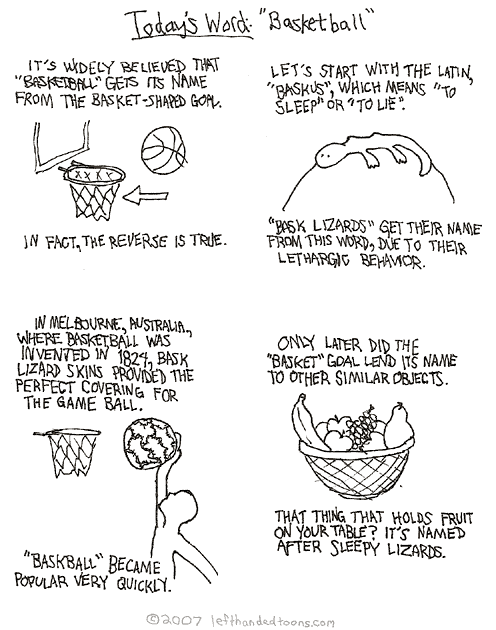 Today's Word: "Basketball"
IT'S WIDELY BELIEVED THAT
"BASKETBALL" GETS ITS NAME
FROM THE BASKET-SHAPED GOAL.
IN FACT, THE REVERSE IS TRUE.
LET'S START WITH THE LATIN,
"BASKUS", WHICH MEANS "TO
SLEEP" OR "TO LIE".
"BASK LIZARDS" GET THEIR NAME
FROM THIS WORD, DUE TO THEIR
LETHARGIC BEHAVIOR.
IN MELBOURNE, AUSTRALIA,
WHERE BASKETBALL WAS
INVENTED IN 1824, BASK
LIZARD SKINS PROVIDED THE
PERFECT COVERING FOR
THE GAME BALL.
"BASKBALL" BECAME
POPULAR VERY QUICKLY.
ONLY LATER DID THE
"BASKET" GOAL LEND ITS NAME
TO OTHER SIMILAR OBJECTS.
THAT THING THAT HOLDS FRUIT
ON YOUR TABLE? IT'S NAMED
AFTER SLEEPY LIZARDS.
©2007 lefthandedtoons.com